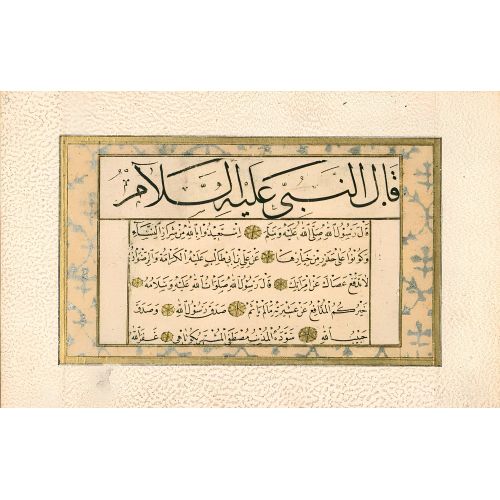 قال النبي عليه السلام
قال رسول الله صلى الله عليه وسلم استعيذوا بالله من شرار النساء
وكونوا على حذر من خيارها عن علي بن ابي طالب عليه الكرامة والرضوان
لا ترفع عصاك عن اهلك قال رسول الله صلوات الله عليه وسلامه
خيركم المدافع عن عشيرته ما لم يأثم صدق رسول الله وصدق
حبيب الله سوده المذنب مصطفى الشهير بكوتاهي غفر الله